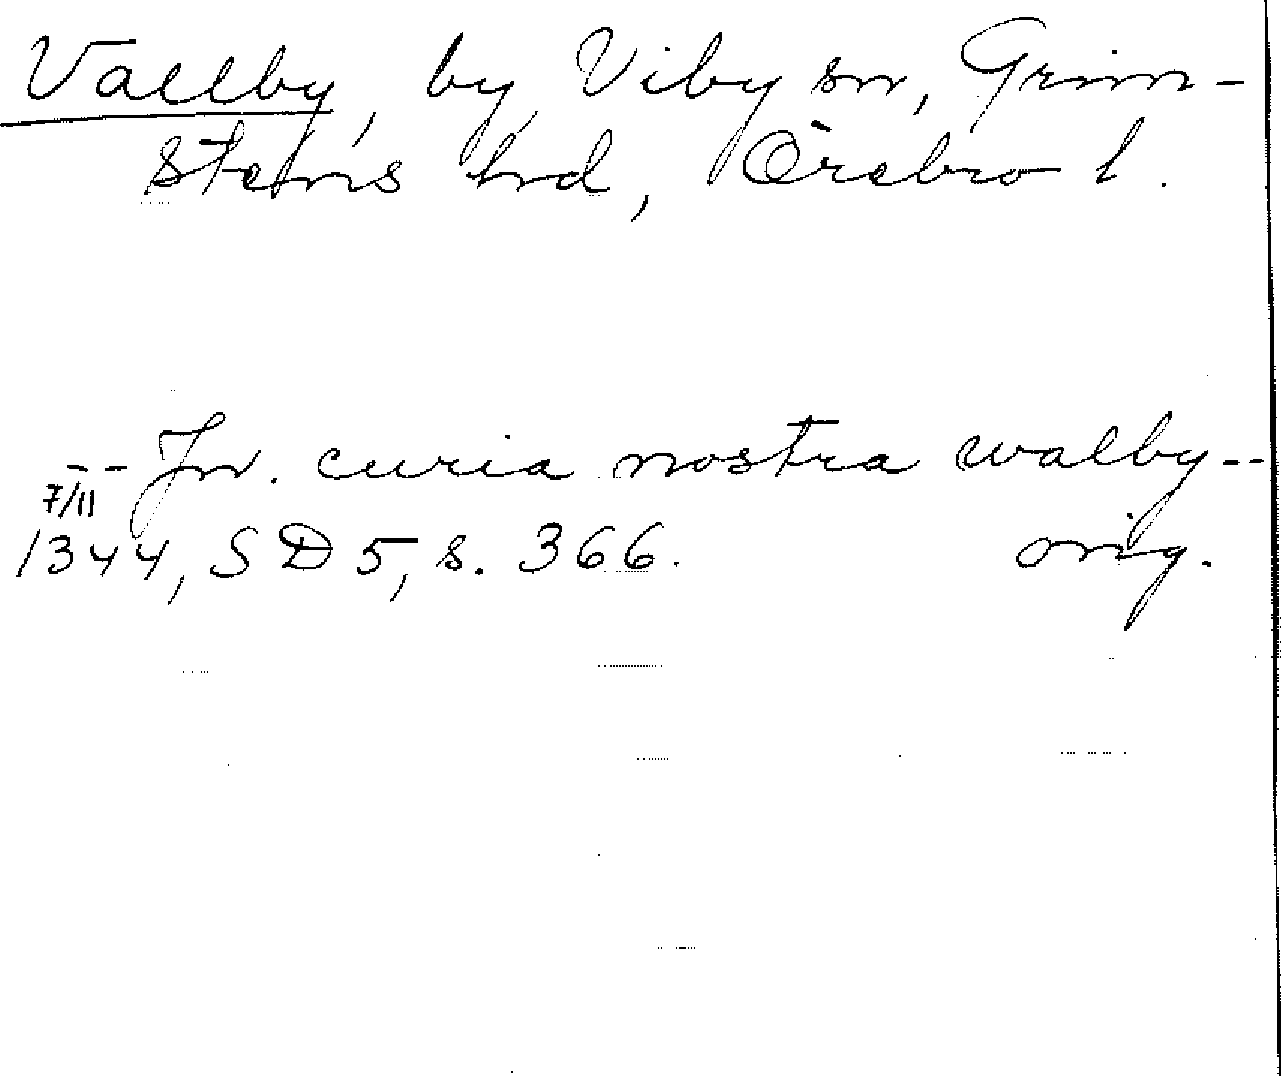 Vallby, by, Viby sn, Grim-
stens hd, Örebro l.
-- Jn. curia nostra walby--
7/11
1344, SD 5, s. 366. orig.